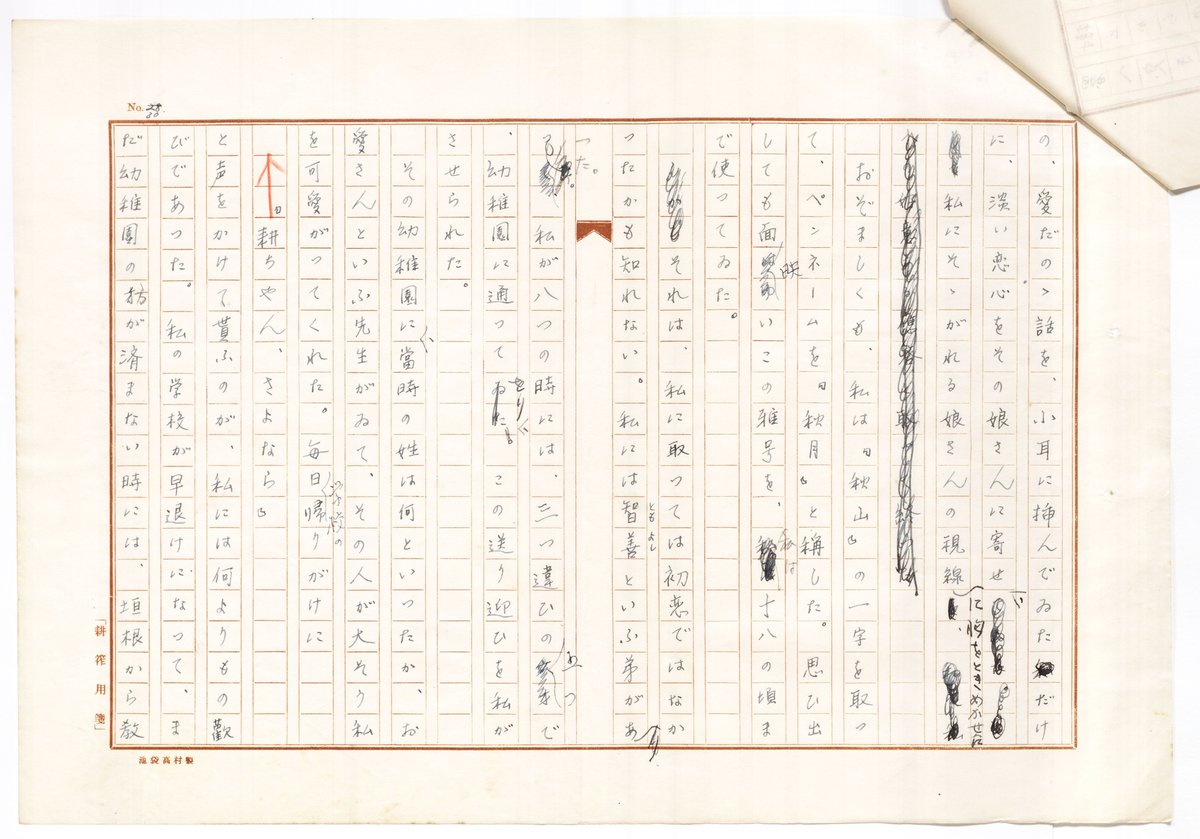 の、愛だのゝ話を、小耳に挿んでゐただけ
に、淡い恋心をその娘さんに寄せ
私にそゝがれる娘さんの視線に胸をときめかせた
おぞましくも、私は「秋山」の一字を取つ
て、ペンネームを「秋月」と称した。思ひ出
しても面映いこの雅号を、私は十八の頃ま
で使つてゐた。
それは、私に取つては初恋ではなか
つたかも知れない。私には智善といふ弟があ
ともよし
つた。
私が八つの時には、三つ違ひの五つで
、幼稚園に通つてをり、この送り迎ひを私が
させられた。
その幼稚園に、當時の姓は何といつたか、お
愛さんといふ先生がゐて、その人が大そう私
を可愛がつてくれた。毎日帰りがけに
「耕ちやん、さよなら」
と声をかけて貰ふのが、私には何よりもの歡
びであつた。私の学校が早退けになつて、ま
だ幼稚園の方が済まない時には、垣根から教
No.
「耕筰用箋」
池袋高村製